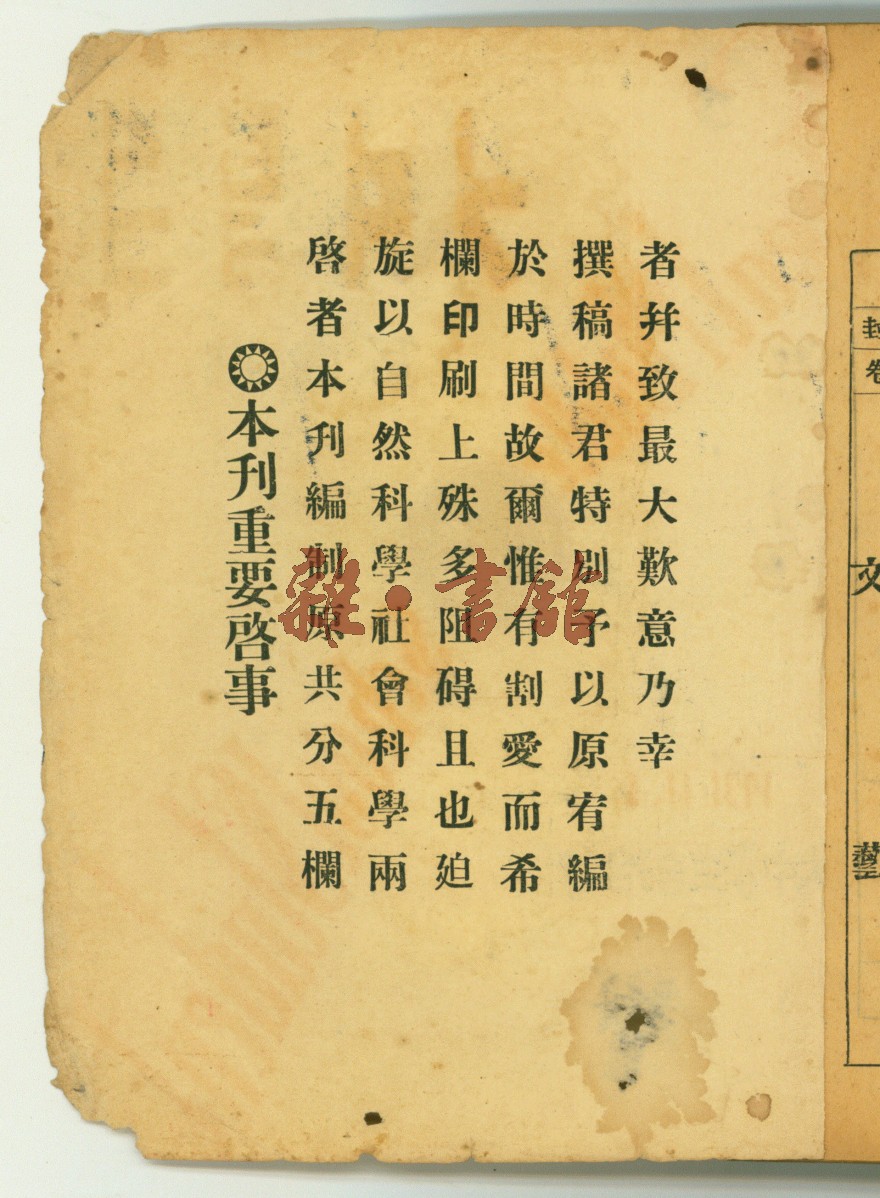 本刊重要啓事
啓者本刊編制原共分五欄
旋以自然科學社會科學兩
欄印刷上殊多阻碍且也廹
於時間故爾惟有割愛而希
撰稿諸君特別予以原宥編
者幷致最大歉意乃幸
雜·書館
文
藝